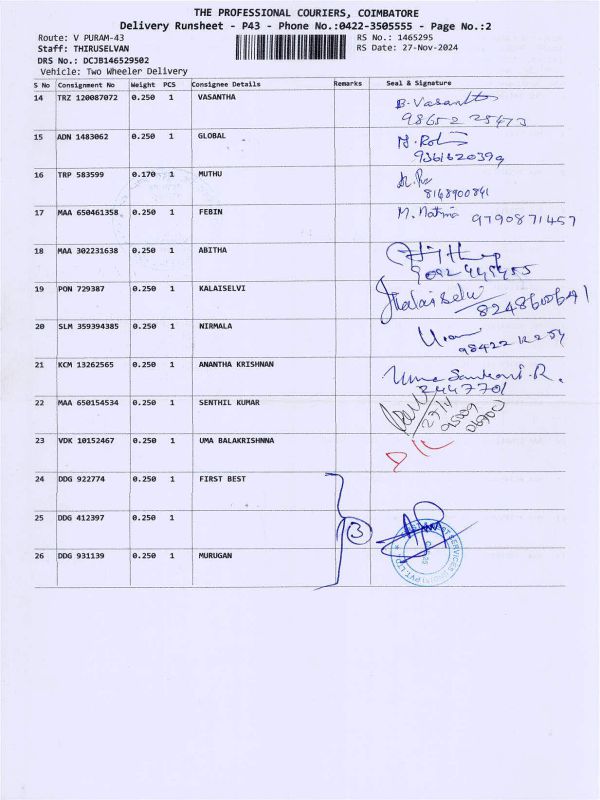 THE PROFESSIONAL COURIERS, COIMBATORE
Delivery Runsheet - P43 - Phone No.:0422-3505555 - Page No.:2
Route: V PURAM-43 RS No.: 1465295
Staff: THIRUSELVAN RS Date: 27-Nov-2024
DRS No.: DCJB146529502
Vehicle: Two Wheeler Delivery
S No Consignment No Weight PCS Consignee Details Remarks Seal & Signature
14 TRZ 120087072 0.250 1 VASANTHA B. Vasantha
98652 25473
15 ADN 1483062 0.250 1 GLOBAL
9361620399
16 TRP 583599 0.170 1 MUTHU
8168900841
17 MAA 650461358 0.250 1 FEBIN M. 9790871457
18 MAA 302231638 0.250 1 ABITHA
19 PON 729387 0.250 1 KALAISELVI Kalaiselvi
8248600691
20 SLM 359394385 0.250 1 NIRMALA
21 KCM 13262565 0.250 1 ANANTHA KRISHNAN Uma Sankari. R.
2447701
22 MAA 650154534 0.250 1 SENTHIL KUMAR
23 VDK 10152467 0.250 1 UMA BALAKRISHNNA
24 DDG 922774 0.250 1 FIRST BEST
25 DDG 412397 0.250 1 3
26 DDG 931139 0.250 1 MURUGAN